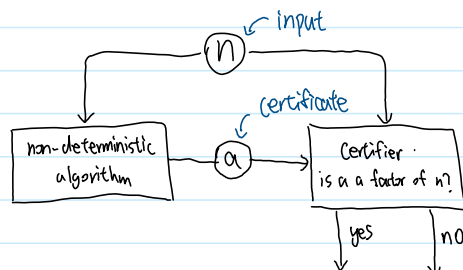 input
n
certificate
non-deterministic
algorithm
a
Certifier.
is a a factor of n?
yes
no